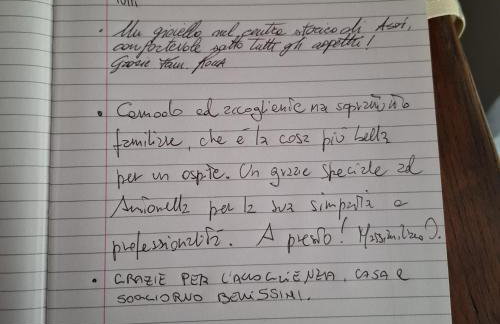 • Un gioiello nel centro storico di Asti,
confortevole sotto tutti gli aspetti!
Grazie Fam.
• Comodo ed accogliente ma soprattutto
familiare, che è la cosa più bella
per un ospite. Un grazie speciale ad
Antonella per la sua simpatia e
professionalità. A presto! Massimiliano D.
• GRAZIE PER L'ACCOGLIENZA. CASA E
SOGGIORNO BENISSIMI.